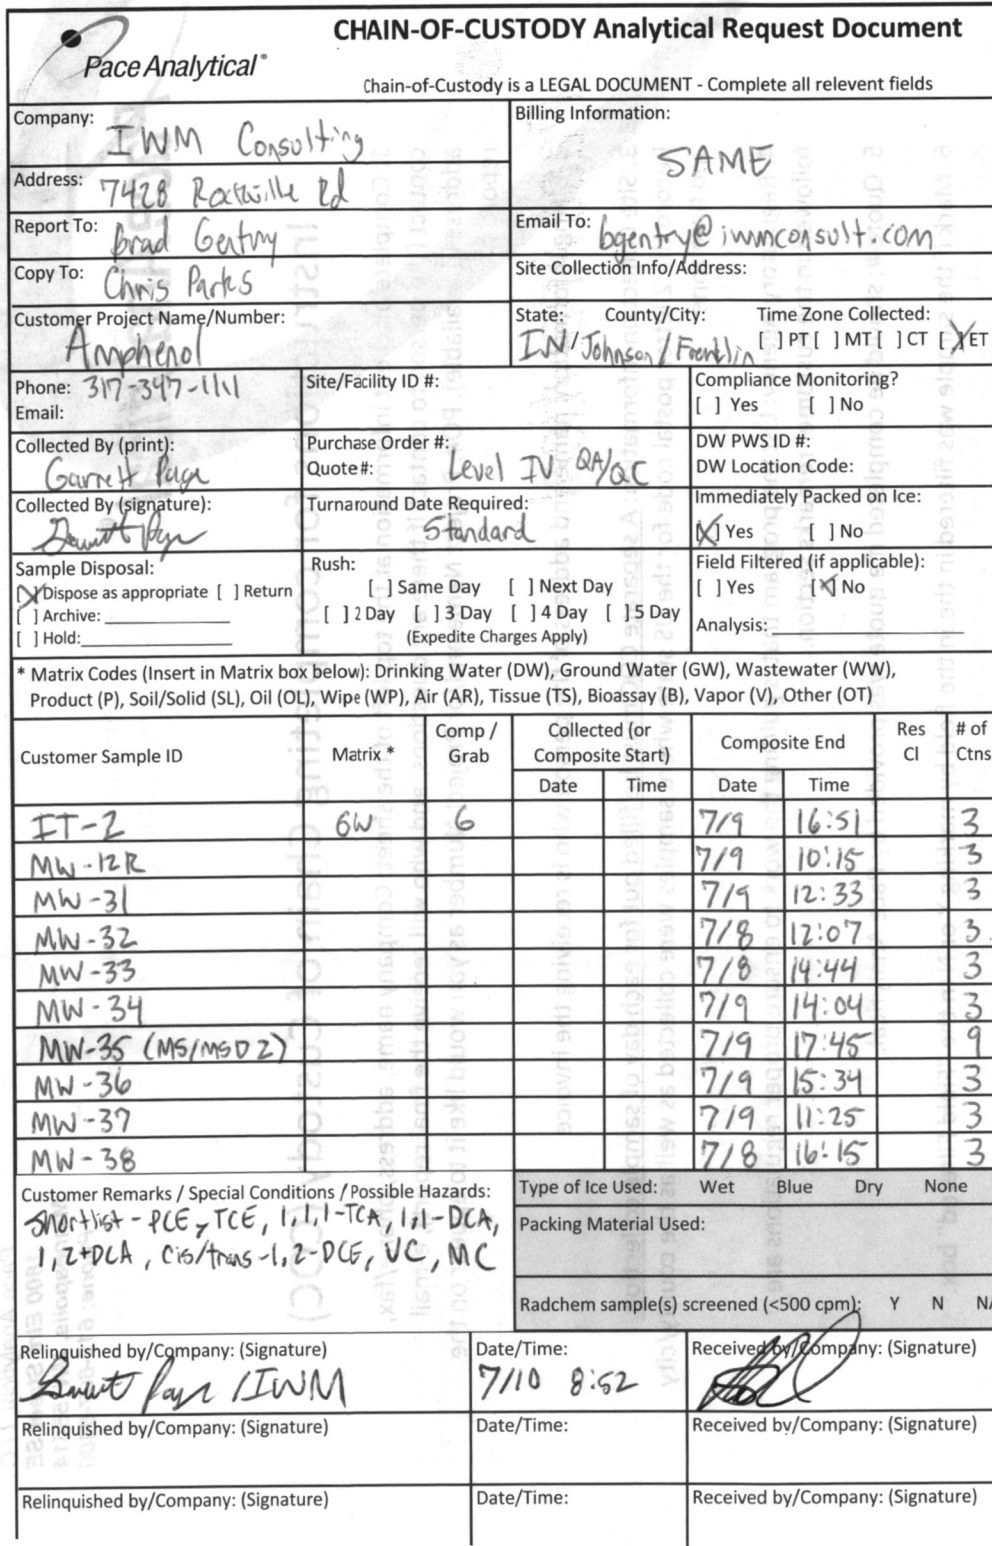 Pace Analytical®
CHAIN-OF-CUSTODY Analytical Request Document
Chain-of-Custody is a LEGAL DOCUMENT - Complete all relevent fields
Company: IWM Consulting
Billing Information: SAME
Address: 7428 Rockville Rd
Report To: Brad Gentry
Email To: bgentry@iwmconsult.com
Copy To: Chris Parks
Site Collection Info/Address:
Customer Project Name/Number: Amphenol
State: County/City: Time Zone Collected:
IN / Johnson / Franklin [ ] PT [ ] MT [ ] CT [X] ET
Phone: 317-347-1111
Email:
Site/Facility ID #:
Compliance Monitoring?
[ ] Yes [ ] No
Collected By (print): Garrett Page
Purchase Order #:
Quote #: Level IV QA/QC
DW PWS ID #:
DW Location Code:
Collected By (signature): Garrett Page
Turnaround Date Required: Standard
Immediately Packed on Ice:
[X] Yes [ ] No
Sample Disposal:
[X] Dispose as appropriate [ ] Return
[ ] Archive:
[ ] Hold:
Rush:
[ ] Same Day [ ] Next Day
[ ] 2 Day [ ] 3 Day [ ] 4 Day [ ] 5 Day
(Expedite Charges Apply)
Field Filtered (if applicable):
[ ] Yes [X] No
Analysis:
* Matrix Codes (Insert in Matrix box below): Drinking Water (DW), Ground Water (GW), Wastewater (WW),
Product (P), Soil/Solid (SL), Oil (OL), Wipe (WP), Air (AR), Tissue (TS), Bioassay (B), Vapor (V), Other (OT)
Customer Sample ID Matrix * Comp / Grab Collected (or Composite Start) Composite End Res Cl # of Ctns
Date Time Date Time
IT-2 GW G 7/9 16:51 3
MW-12R 7/9 10:15 3
MW-31 7/9 12:33 3
MW-32 7/8 12:07 3
MW-33 7/8 14:44 3
MW-34 7/9 14:04 3
MW-35 (MS/MSD 2) 7/9 17:45 9
MW-36 7/9 15:34 3
MW-37 7/9 11:25 3
MW-38 7/8 16:15 3
Customer Remarks / Special Conditions / Possible Hazards:
Shortlist - PCE, TCE, 1,1,1-TCA, 1,1-DCA,
1,2-DCA, Cis/trans-1,2-DCE, VC, MC
Type of Ice Used: Wet Blue Dry None
Packing Material Used:
Radchem sample(s) screened (<500 cpm): Y N NA
Relinquished by/Company: (Signature)
Garrett Page / IWM
Date/Time:
7/10 8:52
Received by/Company: (Signature)
Relinquished by/Company: (Signature)
Date/Time:
Received by/Company: (Signature)
Relinquished by/Company: (Signature)
Date/Time:
Received by/Company: (Signature)